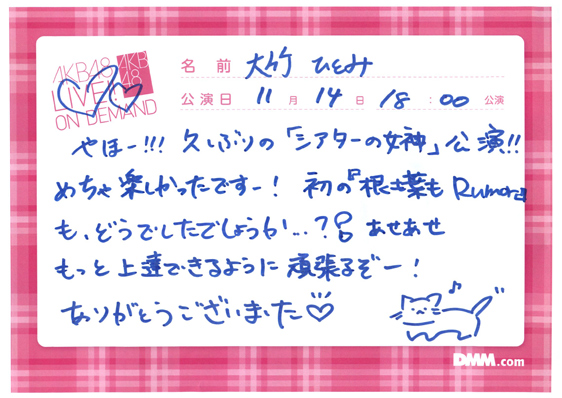 AKB48
LIVE!!
ON DEMAND
AKB
48
名前 大竹 ひとみ
公演日 11月14日 18:00 公演
やほー!!! 久しぶりの「シアターの女神」公演!!
めちゃ楽しかったですー! 初の『根も葉も Rumor』
も、どうでしたでしょうか...? あせあせ
もっと上達できるように頑張るぞー!
ありがとうございました♡
DMM.com